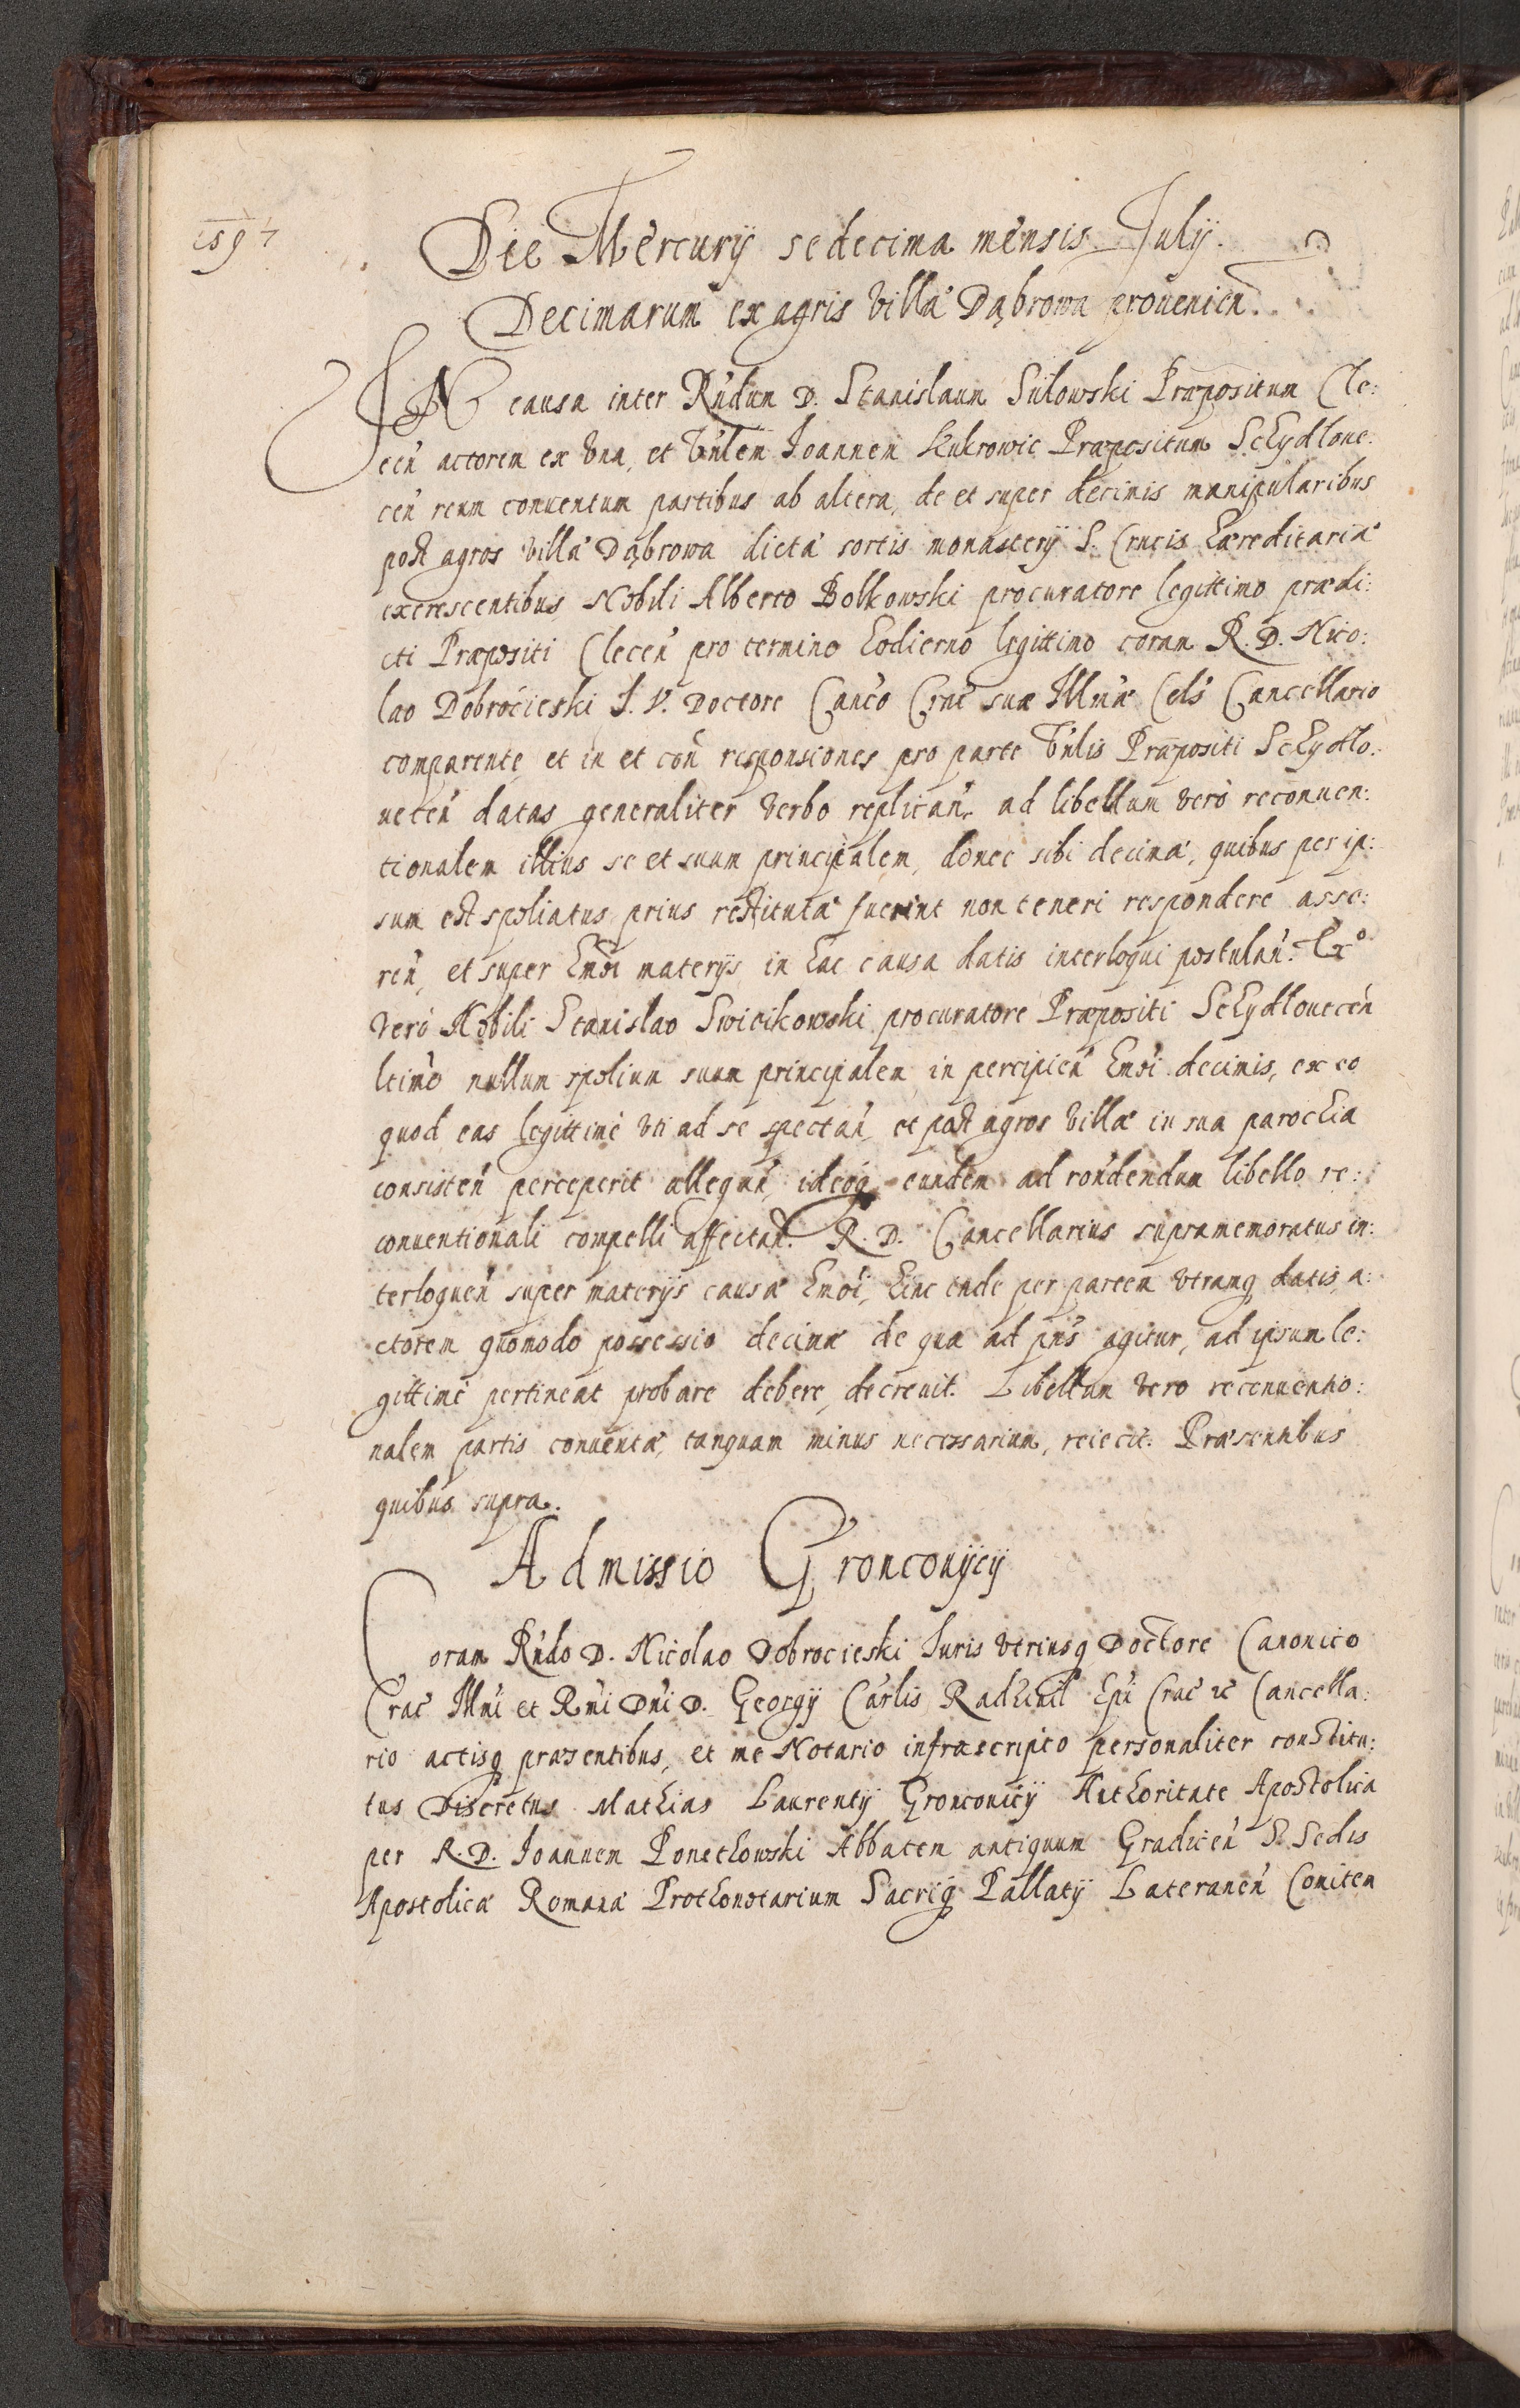 1597
Die Mercurij sedecima mensis Julij.
Decimarum ex agris villæ Dąbrowa prouenień.
IN causa inter Rńdum D. Stanislaum Sulowski Præpositum Cle:
ceń actorem ex vna, et Vńlem Joannem Kukrowic Præpositum Schydloue:
ceń reum conuentum partibus ab altera, de et super decimis manipularibus
post agros villæ Dąbrowa dictæ sortis monasterij S. Crucis hæreditariæ
excrescentibus, Nobili Alberto Bolkowski procuratore legittimo prædi:
cti Præpositi Cleceń pro termino hodierno legittimo coram R. D. Nico:
lao Dobrocieski J. V. Doctore Cańco Crać suæ Illmæ Cels Cancellario
comparente et in et coń responsiones pro parte Vńlis Præpositi Schydlo:
ueceń datas generaliter verbo replicań, ad libellum verò reconuen:
tionalem illius se et suum principalem, donec sibi decimæ, quibus per ip:
sum est spoliatus prius restitutæ fuerint non teneri respondere asse:
reń, et super hmōi materijs in hac causa datis interloqui postulań. Ex°
verò Nobili Stanislao Swiecikowski procuratore Præpositi Schydloueceń
ltimo nullum spolium suum principalem in percipień hmōi decimis, ex eo
quod eas legittimè vti ad se spectań, et post agros villæ in sua parochia
consisteń perceperit allegań, ideoq eundem ad rońdendum libello re:
conuentionali compelli affectań. R. D. Cancellarius supramemoratus in:
terloqueń super materijs causæ hmōi, hinc inde per partem vtramq datis, a:
ctorem quomodo possessio decimæ de qua ad pńs agitur, ad ipsum le:
gittimè pertineat probare debere, decreuit. Libellum vero reconuentio:
nalem partis conuentæ, tanquam minus necessarium, reiecit. Præsentibus
quibus supra.
Admissio Gronconijcij
Coram Rńdo D. Nicolao Dobrocieski Juris vtriusq Doctore Canonico
Crać Illmi et Rmi Dńi D. Georgij Carlis Radhiuil Epi Crać ic Cancella:
rio actisq præsentibus, et me Notario infrascripto personaliter constitu:
tus Discretus Mathias Laurentij Gronconicij Authoritate Apostolica
per R. D. Joannem Ponethowski Abbatem antiquum Gradiceń S. Sedis
Apostolicæ Romanæ Prothonotarium Sacriq Pallatij Lateraneń Comitem